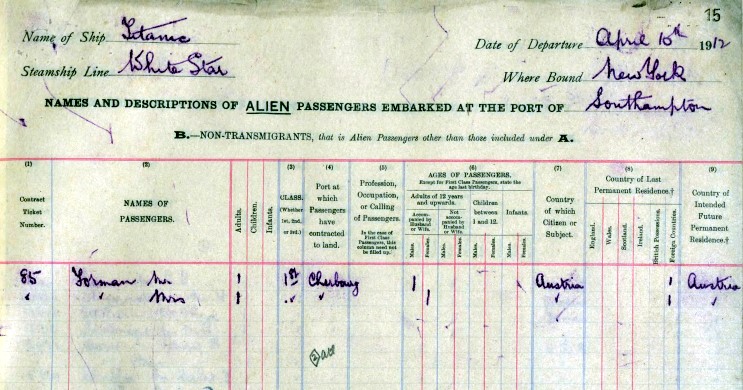 15
Name of Ship Titanic
Date of Departure April 10th 1912
Steamship Line White Star
Where Bound New York
NAMES AND DESCRIPTIONS OF ALIEN PASSENGERS EMBARKED AT THE PORT OF Southampton
B.—NON-TRANSMIGRANTS, that is Alien Passengers other than those included under A.
(1) (2) (3) (4) (5) (6) (7) (8) (9)
Contract Ticket Number.
NAMES OF PASSENGERS.
Adults.
Children.
Infants.
CLASS.
(Whether 1st, 2nd, or 3rd.)
Port at which Passengers have contracted to land.
Profession, Occupation, or Calling of Passengers.
In the case of First Class Passengers, this column need not be filled up.
AGES OF PASSENGERS.
Except for First Class Passengers, state the age last birthday.
Adults of 12 years and upwards.
Accompanied by Husband or Wife.
Not accompanied by Husband or Wife.
Children between 1 and 12.
Infants.
Males. Females. Males. Females. Males. Females. Males. Females.
Country of which Citizen or Subject.
Country of Last Permanent Residence.†
England.
Wales.
Scotland.
Ireland.
British Possessions.
Foreign Countries.
Country of Intended Future Permanent Residence.†
85 Forman Mr 1 1st Cherbourg 1 Austria 1 Austria
" " Mrs 1 " " 1 " 1 "
2